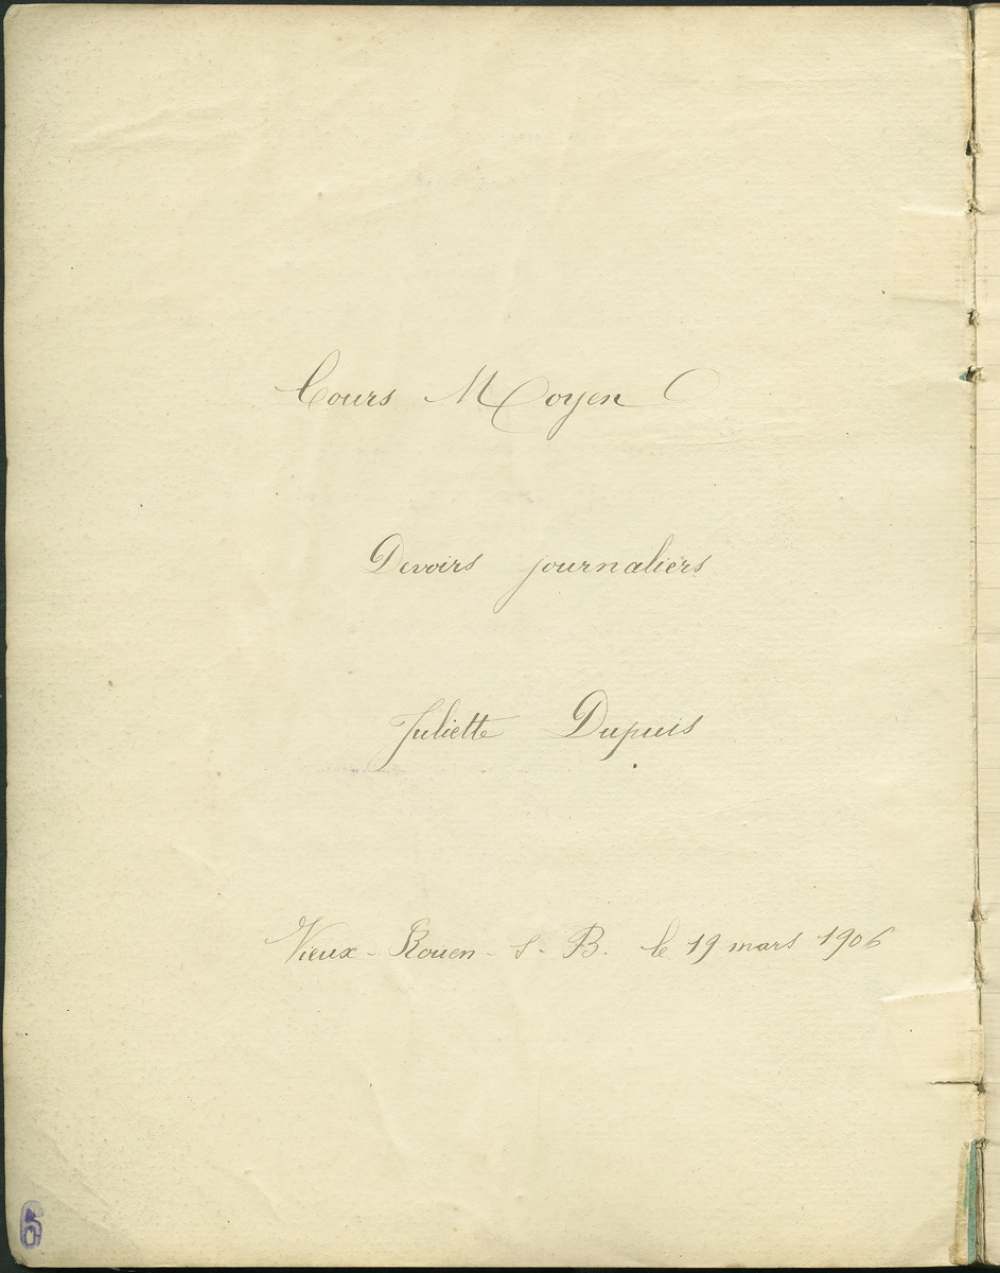 Cours Moyen
Devoirs journaliers
Juliette Dupuis
Vieux-Rouen-s-B. le 19 mars 1906
6